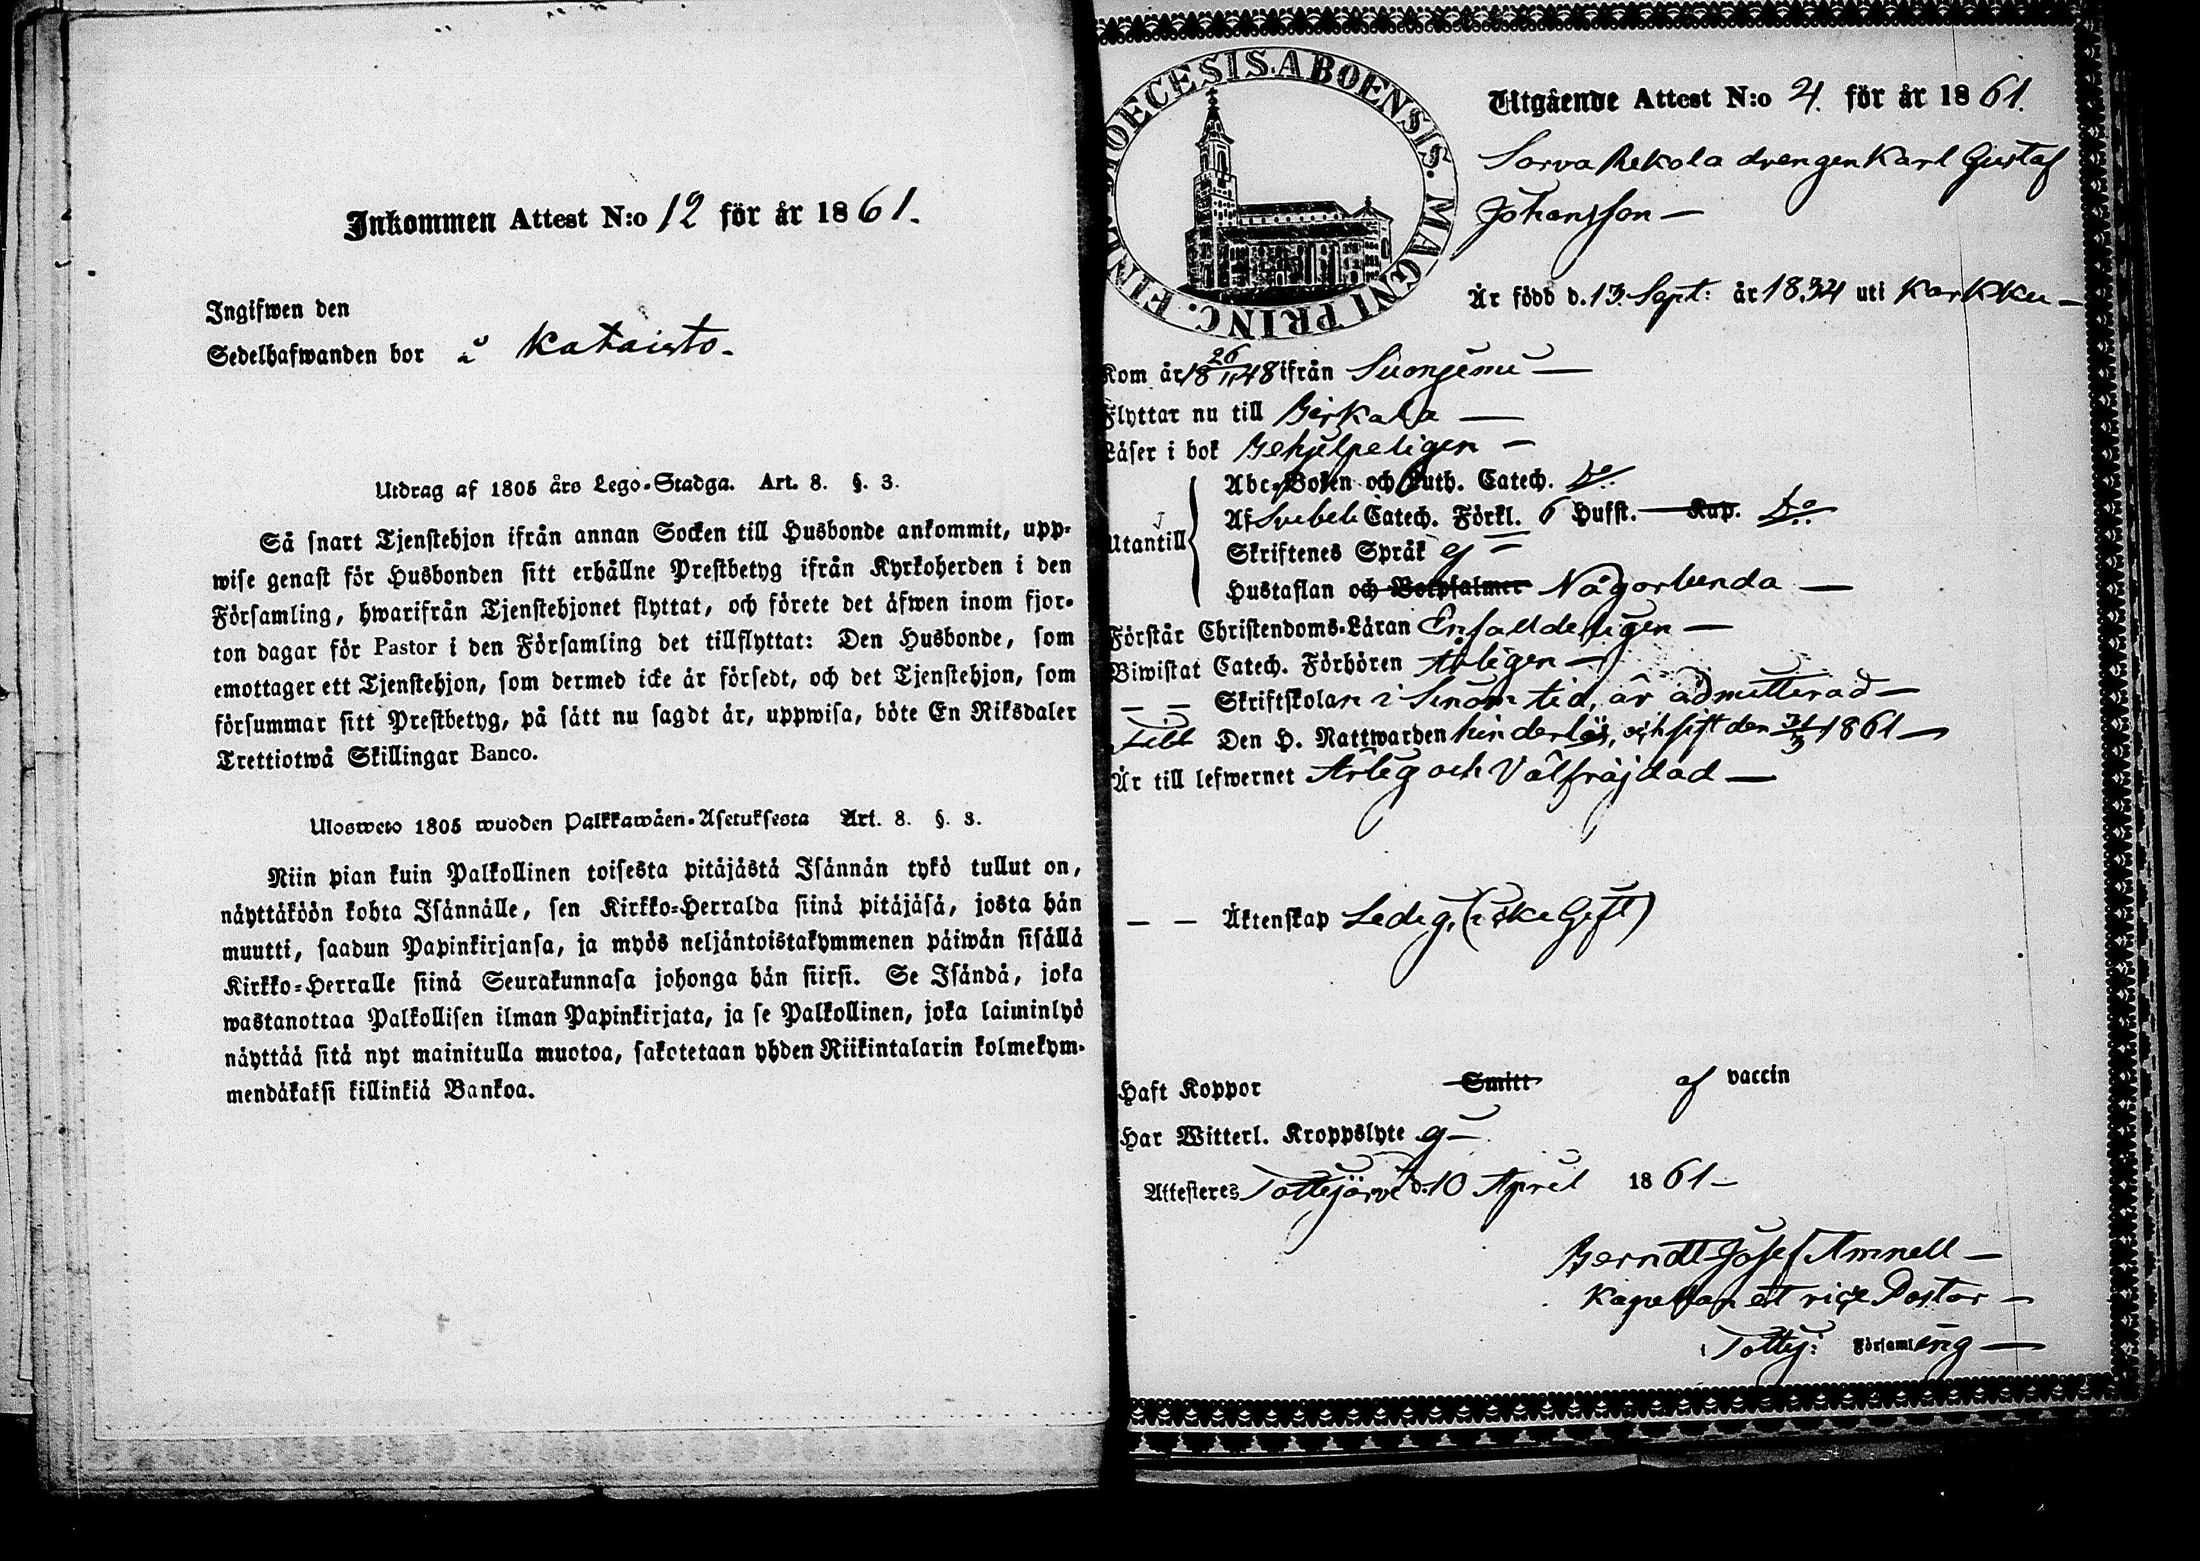 Inkommen Attest N:o 12 för år 1861.
Ingifwen den
Sedelhafwanden bor å Kataisto.
Utdrag af 1805 års Lego-Stadga. Art. 8. §. 3.
Så snart Tjenstehjon ifrån annan Socken till Husbonde ankommit, upp-
wise genast för Husbonden sitt erhållne Prestbetyg ifrån Kyrkoherden i den
Församling, hwarifrån Tjenstehjonet flyttat, och förete det äfwen inom fjor-
ton dagar för Pastor i den Församling det tillflyttat: Den Husbonde, som
emottager ett Tjenstehjon, som dermed icke är försedt, och det Tjenstehjon, som
försummar sitt Prestbetyg, på sätt nu sagdt är, uppwisa, böte En Riksdaler
Trettiotwå Skillingar Banco.
Ulosweto 1805 wuoden Palkkawäen-Asetuksesta Art. 8. §. 3.
Niin pian kuin Palkollinen toisesta pitäjästä Isännän tykö tullut on,
näyttäköön kohta Isännälle, sen Kirkko-Herralda siinä pitäjäsä, josta hän
muutti, saadun Papinkirjansa, ja myös neljäntoistakymmenen päiwän sisällä
Kirkko-Herralle siinä Seurakunnasa johonga hän siirsi. Se Isändä, joka
wastanottaa Palkollisen ilman Papinkirjata, ja se Palkollinen, joka laiminlyö
näyttää sitä nyt mainitulla muotoa, sakotetaan yhden Riikintalarin kolmekym-
mendäkaksi killinkiä Bankoa.
DIOECESIS. ABOENSIS. MAGNI PRINC. FINL.
Utgående Attest N:o 21. för år 1861.
Sorva Rekola drengen Karl Gustaf
Johansson —
Är född d. 13. Sept: år 1834 uti Karkku —
Kom år 18 26/11 48 ifrån Suoniemi —
Flyttar nu till Birkala —
Läser i bok Behjelpeligen —
Abc-Boken och Luth. Catech. Do
Utantill
Af Svebeli Catech. Förkl. 6 Hufst. Kap. Do
Skriftenes Språk ej —
Hustaflan och Botpsalmer Någorlunda —
Förstår Christendoms-Läran Enfalldeligen —
Biwistat Catech. Förhören Årligen —
— — Skriftskolan i Sinom tid, är admitterad —
Till Den H. Nattwarden hinderlös, och sist den 31/3 1861 —
Är till lefwernet Ärlig och Välfräjdad —
— — Äktenskap Ledig, (icke Gift)
Haft Koppor Smitt af vaccin
Har Witterl. Kroppslyte ej —
Attesteres Tottijärvi d. 10 April 1861 —
Berndt Josef Amnell —
Kapellan et vice Pastor —
i Tottij: Församling —